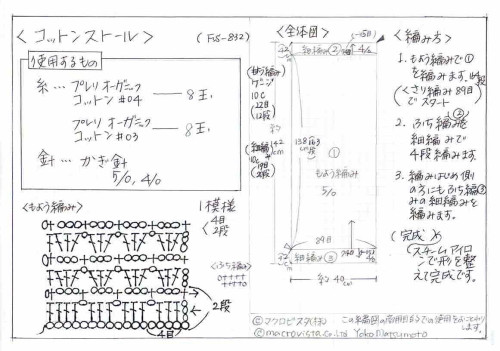 <コットンストール>
(FVS-832)
使用するもの
糸… プレリオーガニック
コットン #04 ── 8玉
プレリオーガニック
コットン #03 ── 8玉
針… かぎ針
5/0, 4/0
<もよう編み>
1模様
4目
2段
<ふち編み>
2段
4目
<全体図>
細編み②
4/0
(もよう編み)
ゲージ
10C
22目
12段
(細編み)
10C
19目
約142cm
①
もよう編み
5/0
89目
細編み③
約40cm
<編み方>
1. もよう編みで①
を編みます。
(くさり編み89目
でスタート
2. ②ふち編みを
細編みで
4段編みます。
3. 編みはじめ側
の方にもふち編③
みの細編みを
編みます。
(完成)
(スチームアイロ
ンで形を整
えて完成です。
©マクロビスタ(株) この編図の商用目的での使用をおことわりします。
©macrovista.co.ltd Yoko Matsumoto